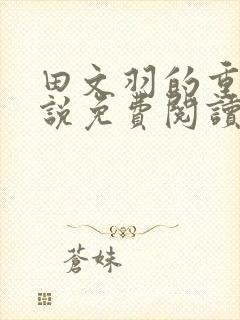 田文羽的重
說免費閱讀
蒼妹